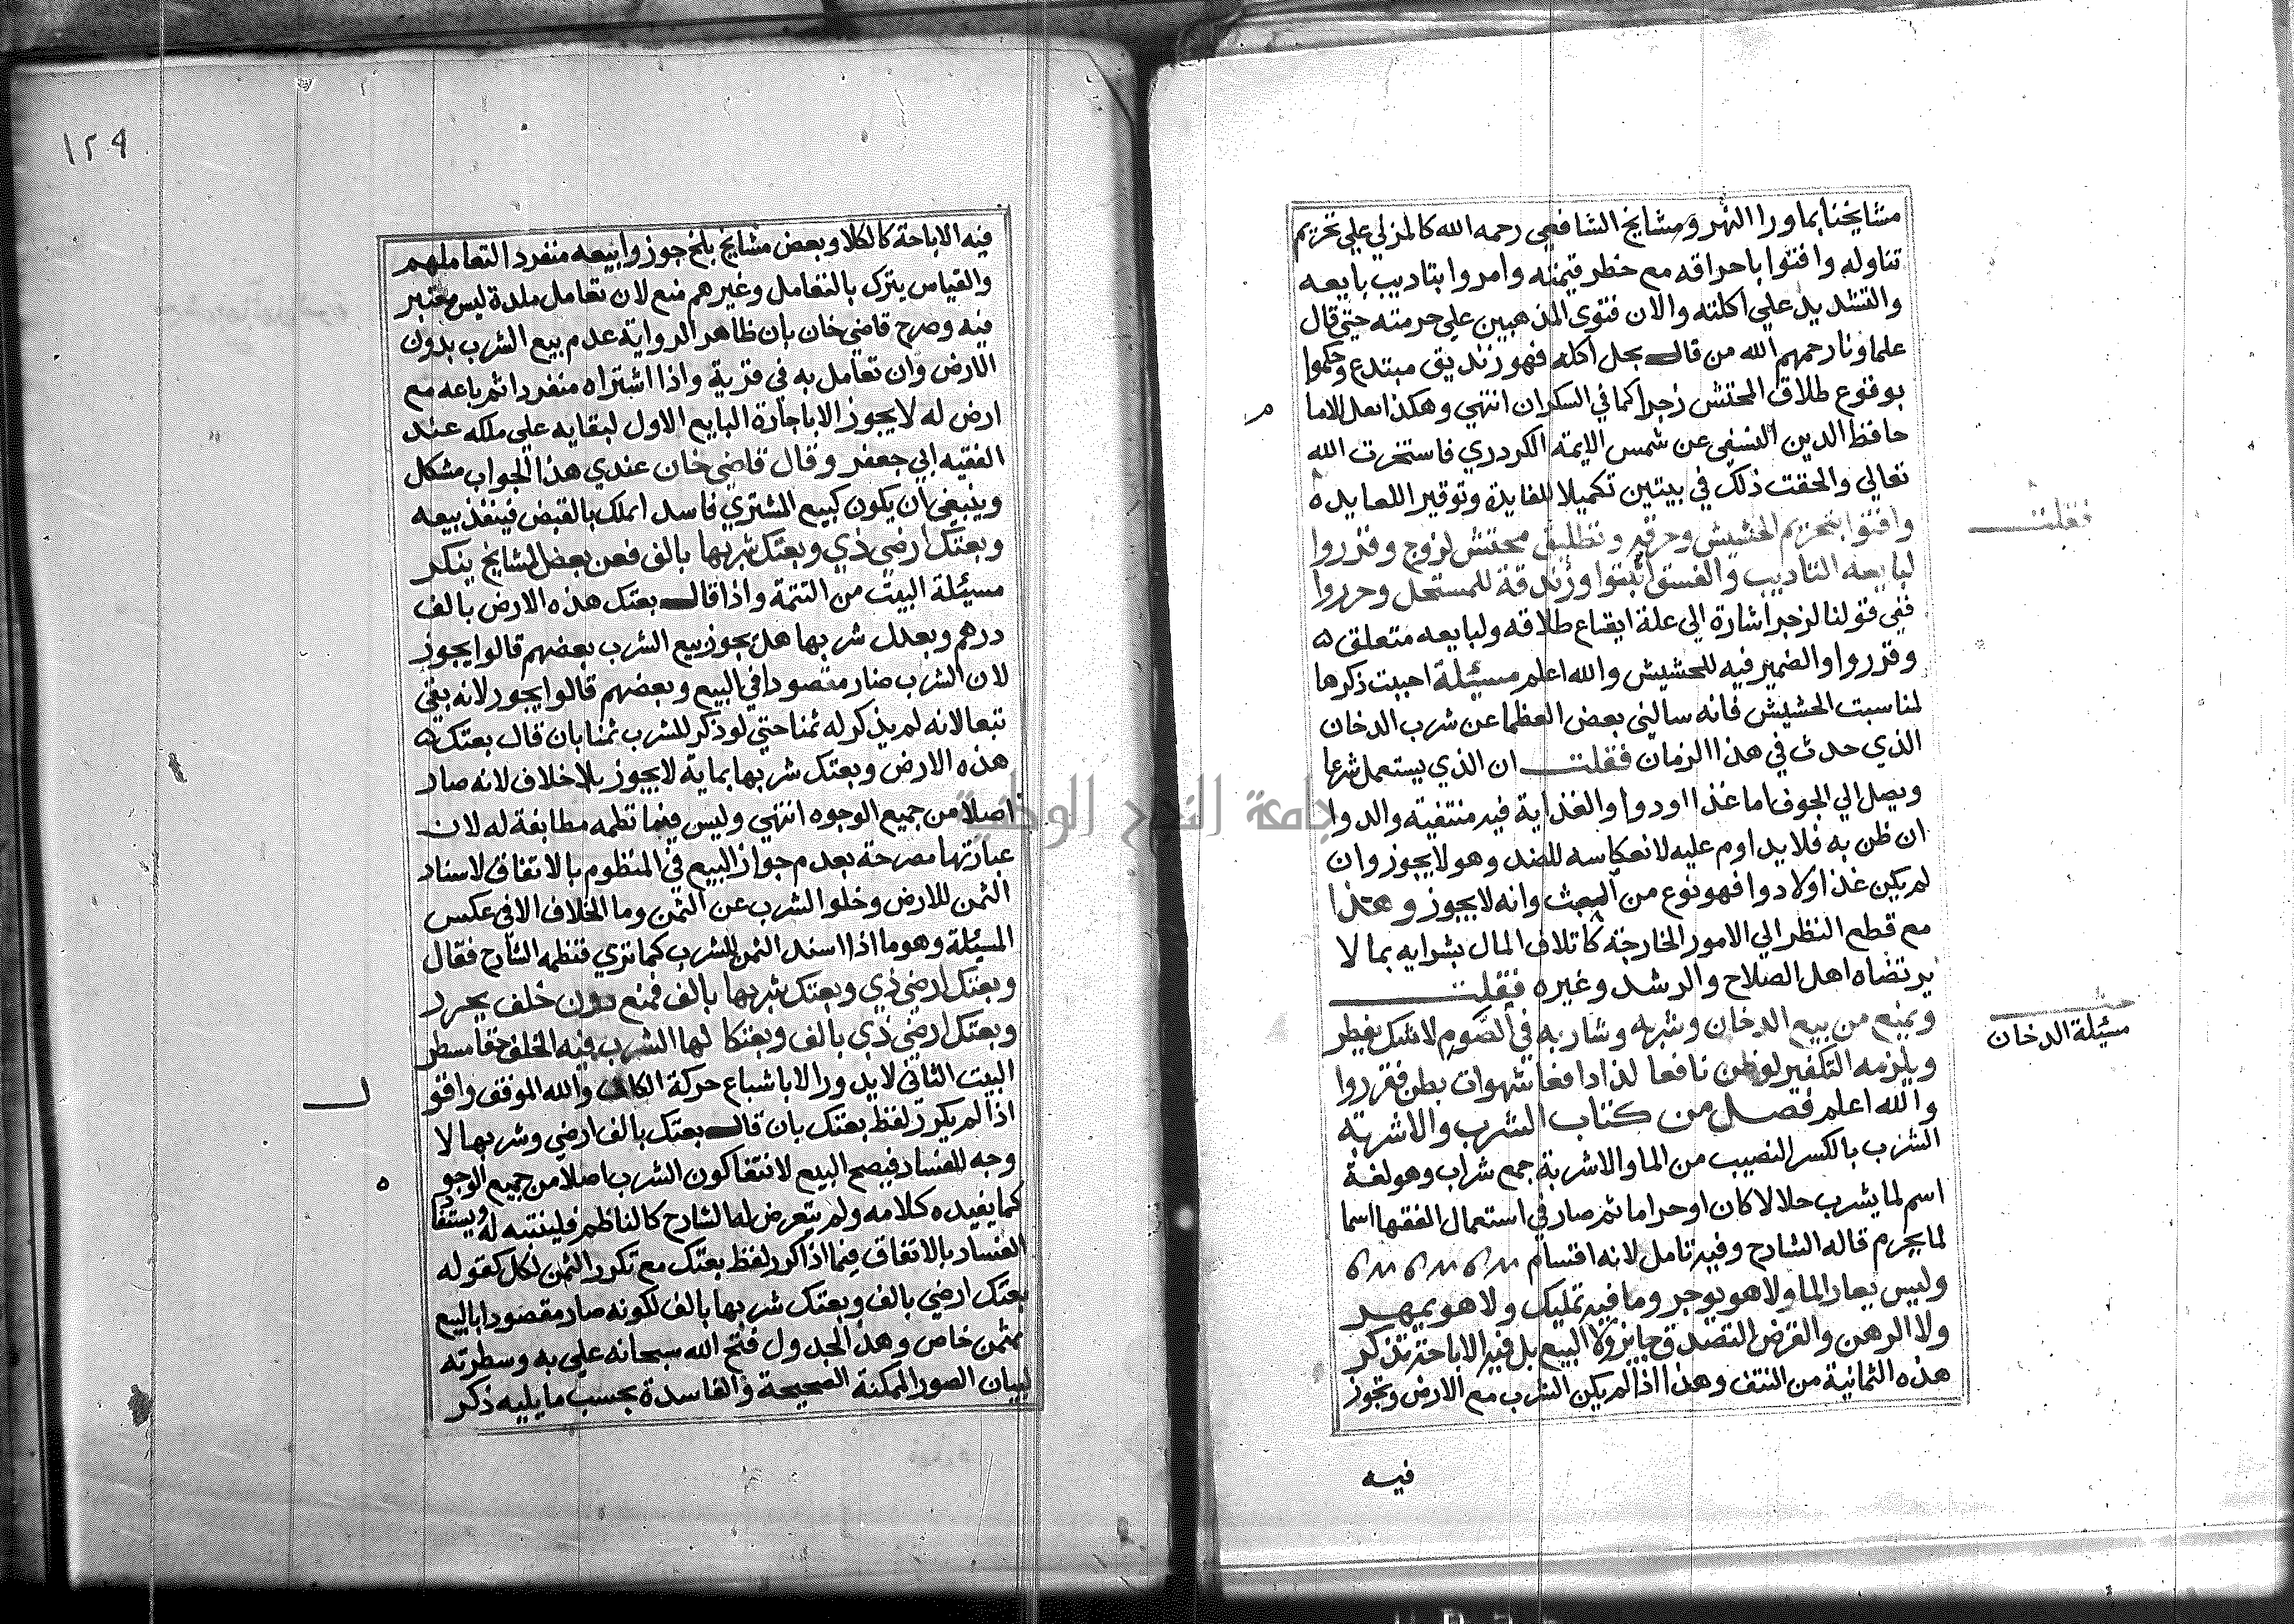 مشايخنا بما ورا النهر ومشايخ الشافعي رحمه الله كالمزلي علي تحريم
تناوله وافتوا باحراقه مع خطر قيمته وامروا بتاديب بايعه
والتشديد علي اكلته والان فتوي المذهبين علي حرمته حتي قال
علماونا رحمهم الله من قال بحل اكله فهو زنديق مبتدع وحكموا
بوقوع طلاق المحتش زجرا كما في السكران انتهي وهكذا الاما
م
حافظ الدين النسفي عن شمس الايمة الكردري فاستخرت الله
تعالي والحقت ذلك في بيتين تكميلا للفايدة وتوقير اللعايده
فقلت
وافتوا بتحريم الحشيش وحرقه وتطليق محتش لزجر وقرروا
لبايعه التاديب والفسق اثبتوا وزندقة للمستحل وحرروا
ففي قولنا لزجر اشارة الي علة ايقاع طلاقه ولبايعه متعلق
وقرروا والضمير فيه للحشيش والله اعلم مسيئلة احببت ذكرها
لمناسبت الحشيش فانه سالني بعض العظما عن شرب الدخان
الذي حدث في هذا الزمان فقلت ان الذي يستعمل شرعا
ويصل الي الجوف اما غذا او دوا والغذاية فيه منتفية والدوا
ان ظن به فلا يداوم عليه لانعكاسه للضد وهو لا يجوز وان
لم يكن غذا ولا دوا فهو نوع من العبث وانه لا يجوز وهذا
مع قطع النظر الي الامور الخارجة كاتلاف المال بشرايه بما لا
يرتضاه اهل الصلاح والرشد وغيره فقلت
مسئلة الدخان
ويمنع من بيع الدخان وشربه وشاربه في الصوم لا شك يفطر
ويلزمه التكفير لو ظن نافعا لذا دافعا شهوات بطن فقرروا
والله اعلم فصل من كتاب الشرب والاشربة
الشرب بالكسر النصيب من الما والاشربة جمع شراب وهو لغة
اسم لما يشرب حلالا كان او حراما ثم صار في استعمال الفقها اسما
لما يحرم قاله الشارح وفيه تامل لانه اقسام
وليس يعار الما ولا هو يوجر وما فيه تمليك ولا هو يمهر
ولا الرهن والقرض التصدق جايز ولا البيع بل فيه الاباحة تذكر
هذه الثمانية من النتف وهذا اذا لم يكن الشرب مع الارض وتجوز
فيه
١٢٩
فيه الاباحة كالكلا وبعض مشايخ بلخ جوزوا بيعه منفردا لتعاملهم
والقياس يترك بالتعامل وغيرهم منع لان تعامل بلدة ليس معتبر
فيه وصرح قاضي خان بان ظاهر الرواية عدم بيع الشرب بدون
الارض وان تعامل به في قرية واذا اشتراه منفردا ثم باعه مع
ارض له لا يجوز الا باجازة البايع الاول لبقايه علي ملكه عند
الفقيه ابي جعفر وقال قاضي خان عندي هذا الجواب مشكل
وينبغي ان يكون كبيع المشتري فاسدا يملك بالقبض فينفذ بيعه
وبعتك ارضي ذي وبعتك شربها بالف فعن بعض المشايخ ينكر
مسيئلة البيت من التتمة واذا قال بعتك هذه الارض بالف
درهم وبعتك شربها هل يجوز بيع الشرب بعضهم قالوا يجوز
لان الشرب صار مقصودا في البيع وبعضهم قالوا يجوز لانه بقي
تبعا لانه لم يذكر له ثمنا حتي لو ذكر للشرب ثمنا بان قال بعتك
هذه الارض وبعتك شربها بماية لا يجوز بلا خلاف لانه صار
اصلا من جميع الوجوه انتهي وليس فيما نظمه مطابقة له لان
عبارتها مصرحة بعدم جواز البيع في المنظوم بالاتفاق لاسناد
الثمن للارض وخلو الشرب عن الثمن وما الخلاف الا في عكس
المسيئلة وهو ما اذا اسند الثمن للشرب كما تري فنظمه الشارح فقال
وبعتك ارضي ذي وبعتك شربها بالف فمنع دون خلف يحرر
وبعتك ارضي ذي بالف وبعتكا لها الشرب فيه الخلف حقا مسطر
البيت الثاني لا يدور الا باشباع حركة الكاف والله الموفق واقو
ل
اذا لم يكرر لفظ بعتك بان قال بعتك بالف ارضي وشربها لا
وجه للفساد فيصح البيع لانتفا كون الشرب اصلا من جميع الوجو
ه
كما يفيده كلامه ولم يتعرض لها الشارح كالناظم فلينتبه له ويستفا
الفساد بالاتفاق فيما اذا كرر لفظ بعتك مع تكرر الثمن لكل كقوله
بعتك ارضي بالف وبعتك شربها بالف لكونه صار مقصودا بالبيع
بثمن خاص وهذا الجدول فتح الله سبحانه علي به وسطرته
لبيان الصور الممكنة الصحيحة والفاسدة بحسب ما يليه ذكر
جامعة النجاح الوطنية